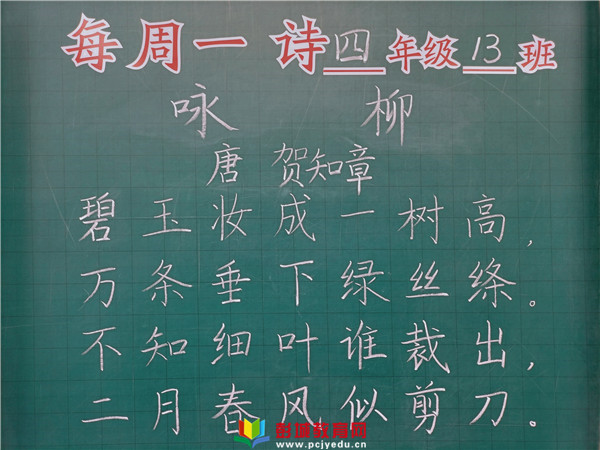 每周一诗四年级13班
咏柳
唐 贺知章
碧玉妆成一树高，
万条垂下绿丝绦。
不知细叶谁裁出，
二月春风似剪刀。
彭城教育网
www.pcjyedu.cn